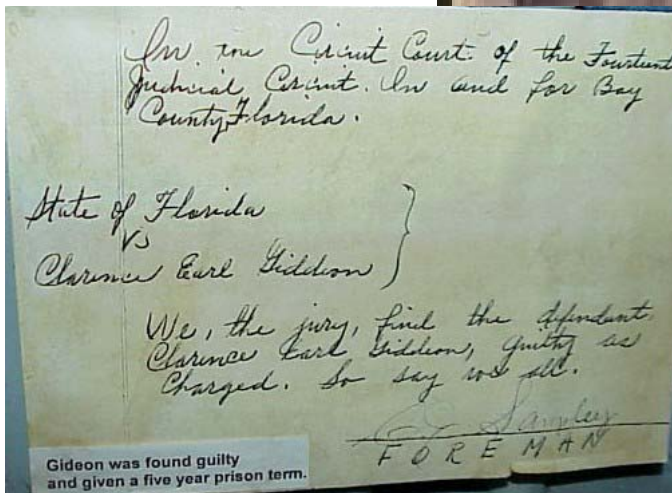 In the Circuit Court of the Fourteent
Judicial Circuit. In and for Bay
County, Florida.
State of Florida
Vs
Clarence Earl Giddeon
We, the jury, find the defendant
Clarence Earl Giddeon, guilty as
Charged. So say we all.
Sampley
FOREMAN
Gideon was found guilty
and given a five year prison term.